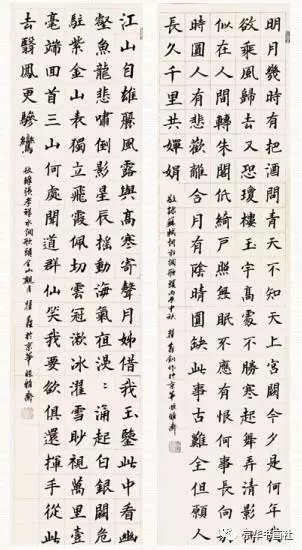 明月幾時有把酒問青天不知天上宮闕今夕是何年我
欲乘風歸去又恐瓊樓玉宇高處不勝寒起舞弄清影何
似在人間轉朱閣低綺戶照無眠不應有恨何事長向別
時圓人有悲歡離合月有陰晴圓缺此事古難全但願人
長久千里共嬋娟
敬錄蘇軾詞水調歌頭丙申中秋
江山自雄麗風露與高寒寄聲月姊借我玉鑒此中看幽
壑魚龍悲嘯倒影星辰搖動海氣夜漫漫湧起白銀闕危
駐紫金山表獨立飛霞佩切雲冠漱冰濯雪眇視萬里一
毫端回首三山何處聞道群仙笑我要欲俱還揮手從此
去翳鳳更驂鸞
京华书画社